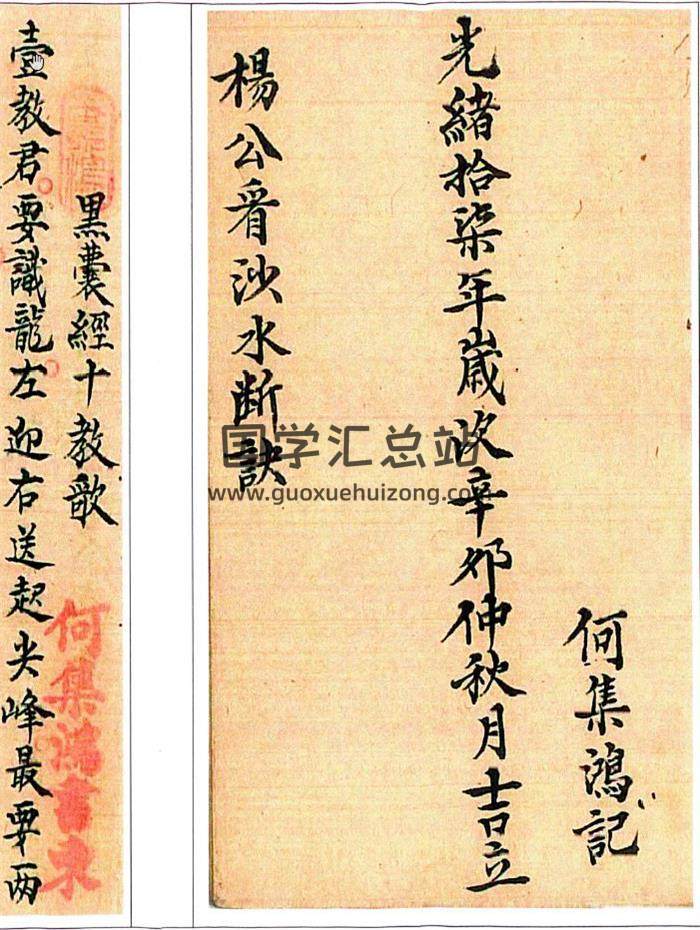 何集鴻記
光緒拾柒年歲次辛卯仲秋月吉立
楊公看沙水断訣
国学汇总站
www.guoxuehuizong.com
黑囊經十教歌
何集鴻書柬
壹教君要識龍左迎右送起尖峰最要两